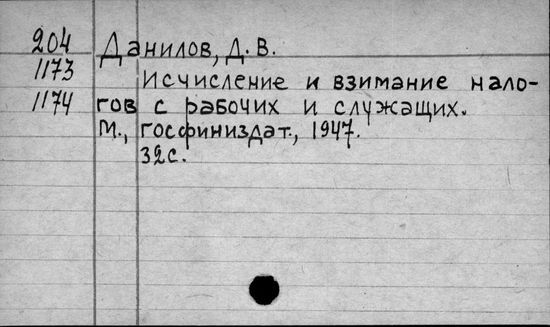 204 Данилов, Д. В.
1173 Исчисление и взимание нало-
1174 гов с рабочих и служащих.
М., Госфиниздат., 1947.
32с.